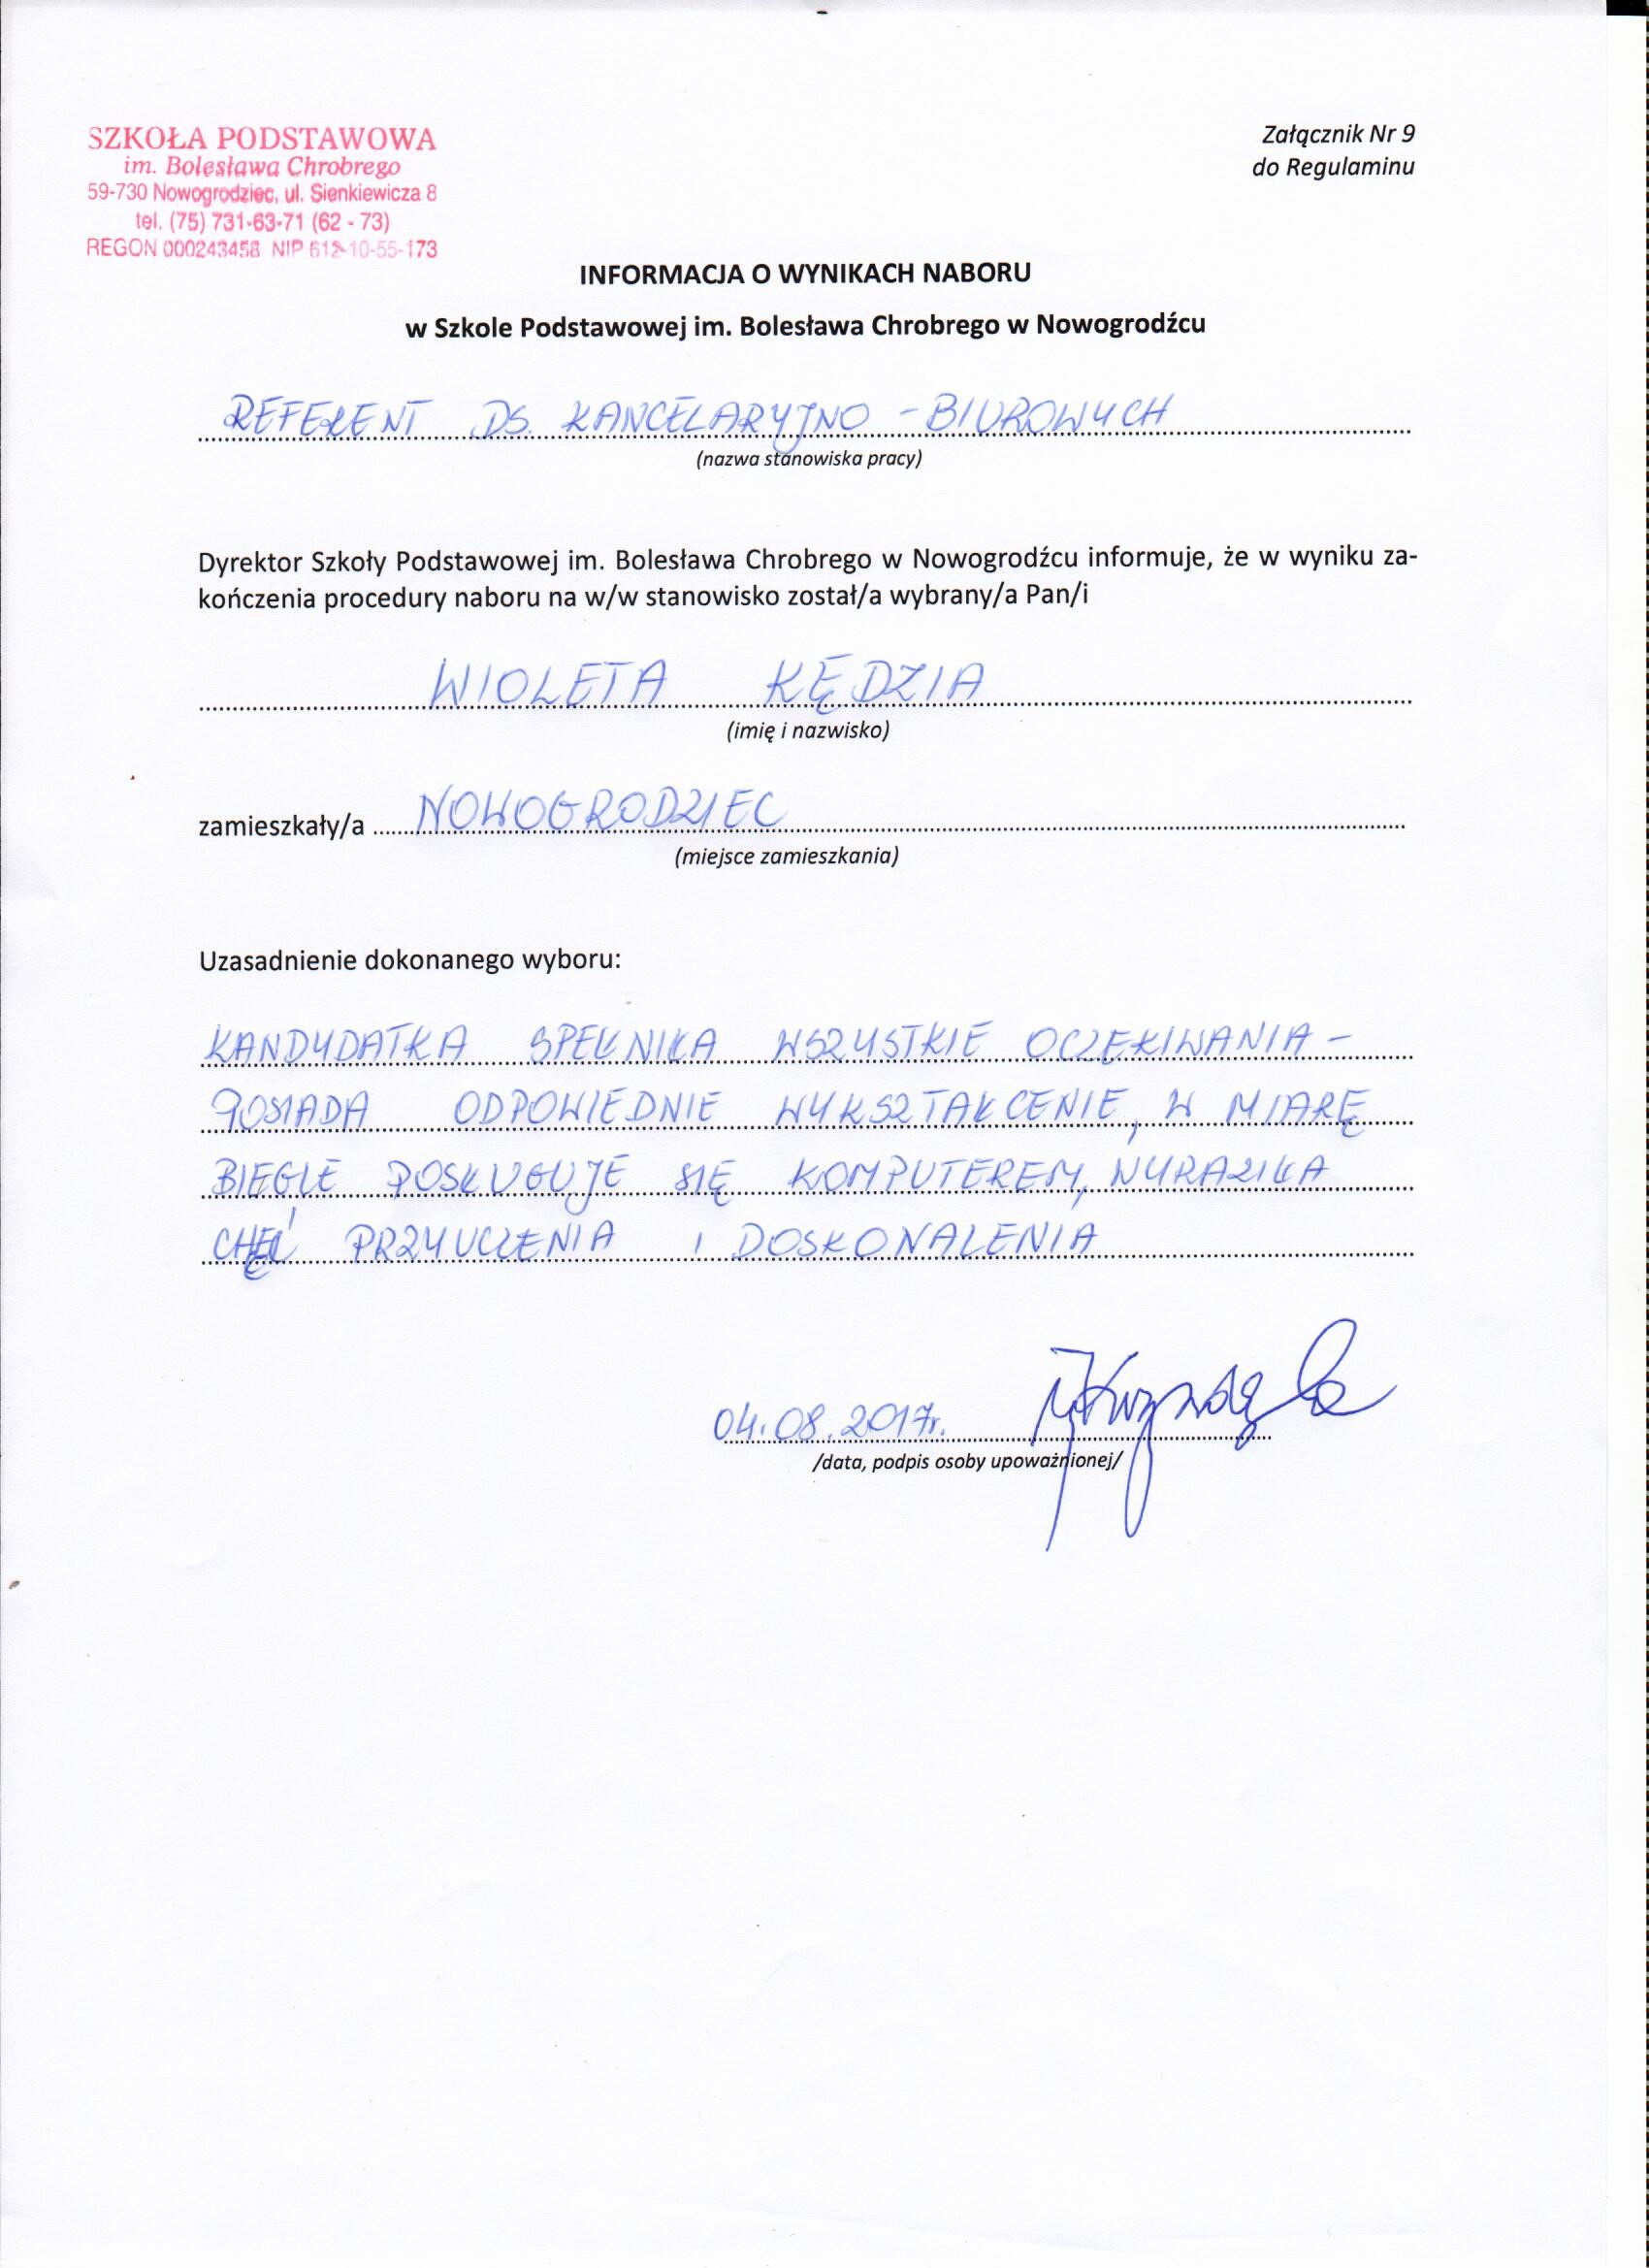 SZKOŁA PODSTAWOWA
im. Bolesława Chrobrego
59-730 Nowogrodziec, ul. Sienkiewicza 8
tel. (75) 731-63-71 (62 - 73)
REGON 000243458 NIP 612-10-55-173
Załącznik Nr 9
do Regulaminu
INFORMACJA O WYNIKACH NABORU
w Szkole Podstawowej im. Bolesława Chrobrego w Nowogrodźcu
REFERENT DS. KANCELARYJNO - BIUROWYCH
(nazwa stanowiska pracy)
Dyrektor Szkoły Podstawowej im. Bolesława Chrobrego w Nowogrodźcu informuje, że w wyniku za-
kończenia procedury naboru na w/w stanowisko został/a wybrany/a Pan/i
WIOLETA KĘDZIA
(imię i nazwisko)
zamieszkały/a NOWOGRODZIEC
(miejsce zamieszkania)
Uzasadnienie dokonanego wyboru:
KANDYDATKA SPEŁNIŁA WSZYSTKIE OCZEKIWANIA -
POSIADA ODPOWIEDNIE WYKSZTAŁCENIE, W MIARĘ
BIEGLE POSŁUGUJE SIĘ KOMPUTEREM, WYRAZIŁA
CHĘĆ PRZYUCZENIA I DOSKONALENIA
04.08.2017r.
/data, podpis osoby upoważnionej/